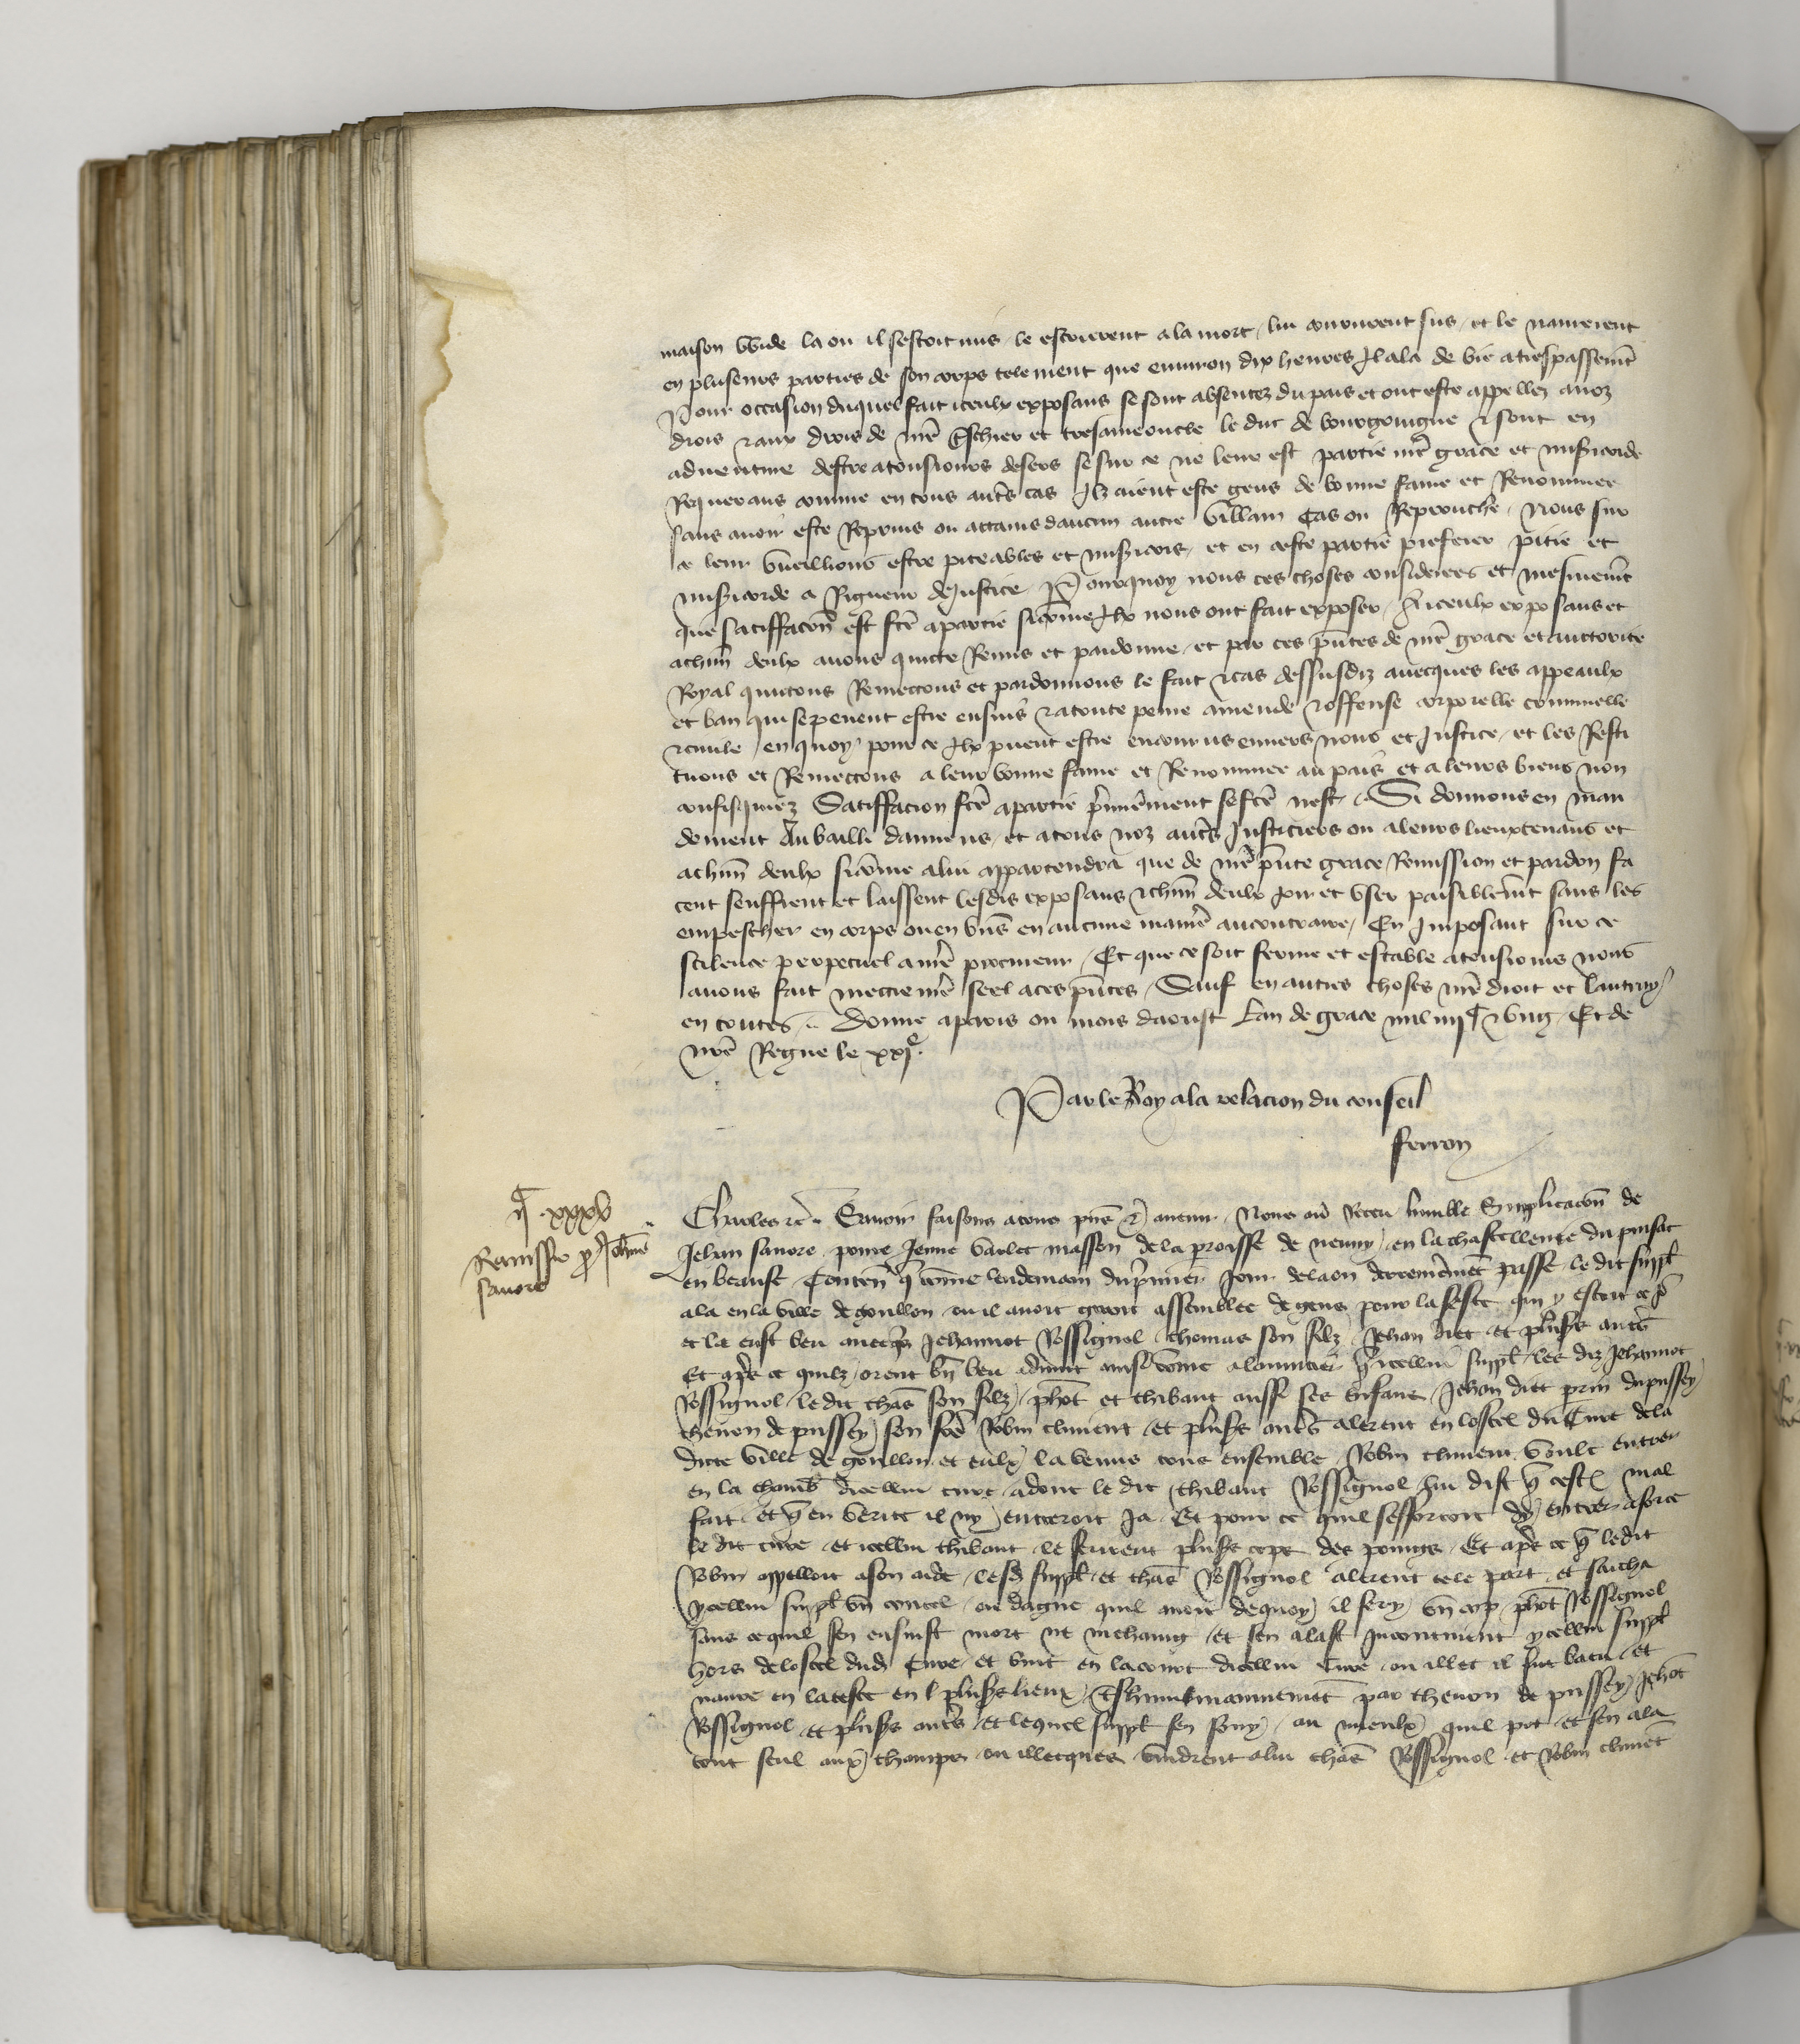 maison wide la ou il sestoit mis le escrierent a la mort lui coururent sus et le navrerent
en pluseurs parties de son corps telement que environ dix heures Il ala de vie a trespassemt
Pour occasion duquel fait iceulx exposans se sont absentez du pais et ont este appellez a noz
drois et aux drois de nre tschier et tresame oncle le duc de bourgoingne et sont en
adventure destre a tousiours desers se sur ce ne leur est partie nre grace et misericorde
Requerans comme en tous autres cas Ilz aient este gens de bonne fame et Renommee
sans avoir este Reprins ou attains daucun autre villain cas ou Reprouche Nous sur
ce leur vueillions estre piteables et misericors et en ceste partie preferer pitie et
misericorde a Rigueur de Justice Pourquoy nous ces choses considerees et mesmemt
que satiffacon est fcte a partie si come Ilx nous ont fait exposer A iceulx exposans et
a chun deulx avons quicte Remis et pardonne et par ces pntes de nre grace et auctorite
Royal quictons Remectons et pardonnons le fait et cas dessusdiz avecques les appeaulx
et ban qui se pevent estre ensuis et a toute peine amende et offense corporelle criminelle
et civile en quoy pour ce Ilx puent estre encourus envers nous et Justice et les Resti
tuons et Remectons a leur bonne fame et Renommee au pais et a leurs biens non
confisquez Satiffacion fcte a partie premierement se fcte nest Si donnons en man
dement Au bailli damiens et a tous noz autres Justiciers ou a leurs lieuxtenans et
a chun deulx si come a lui appartendra que de nre pnte grace Remission et pardon fa
cent seuffrent et laissent lesdis exposans et chun deulx joir et user paisiblemt sans les
empescher en corps ou en biens en aucune maniere au contraire En Imposant sur ce
scilence perpetuel a nre procureur Et que ce soit ferme et estable a tousiours nous
avons fait mectre nre seel a ces pntes Sauf en autres choses nre droit et lautruy
en toutes Donne a paris ou mois daoust Lan de grace mil iiijc et ung Et de
nre Regne le xxje
Par le Roy a la relacion du conseil
ferron
ijc xxxv
Remissio p Johanne
savore
Charles etc Savoir faisons a tous pns et avenir Nous avoir Receu humble Supplicacon de
Jehan savore povre Jeune varlet masson de la parroisse de neuvy en la chastellenie du puisat
en beausse Content que come lendemain du premier Jour de lan derrenierement passe le dit suppl
ala en la ville de goullon ou il avoit grant assemblee de gens pour la feste qui y estoit
et la eust beu avecques Jehannot Rossignol thomas son filz Jehan diet et plusrs autres
Et apres ce quilz orent bn beu advint ainsi come a lanuitier que icellui suppl les diz Jehannot
Rossignol le dit thas son filz phot et thibaut aussi ses enfans Jehan diet perrin du pussey
thevon de pussey son fre Robin climent et plusrs autres alerent en lostel du Cure de la
dicte ville de goullon et eulx la venus tous ensemble Robin climent voult entrer
en la chamb dicellui cure adont le dit thibaut Rossignol lui dist que cestoit mal
fait et que en verite il ny entreroit ja Et pour ce quil sefforcoit dy entrer a force
le dit cure et icellui thibaut le ferirent plusrs cops des poings Et apres ce que ledit
Robin appelloit a son aide lesd suppl et thas Rossignol alerent cele part et saicha
ycellui suppl un coutel ou dague quil avoit de quoy il fery un cop phot Rossignol
sans ce quil sen ensuist mort ne mehaing et sen alast Incontinent ycellui suppl
hors de lostel dud Cure et vint en la court dicellui Cure ou illec il fut batu et
navre en la teste en plusrs lieux par thevon de pussey Jehot
Rossignol et plusrs autres et lequel suppl sen fouy au mieulx quil pot et sen ala
tout seul aux champs ou illecques vindrent a lui thas Rossignol et Robin climet